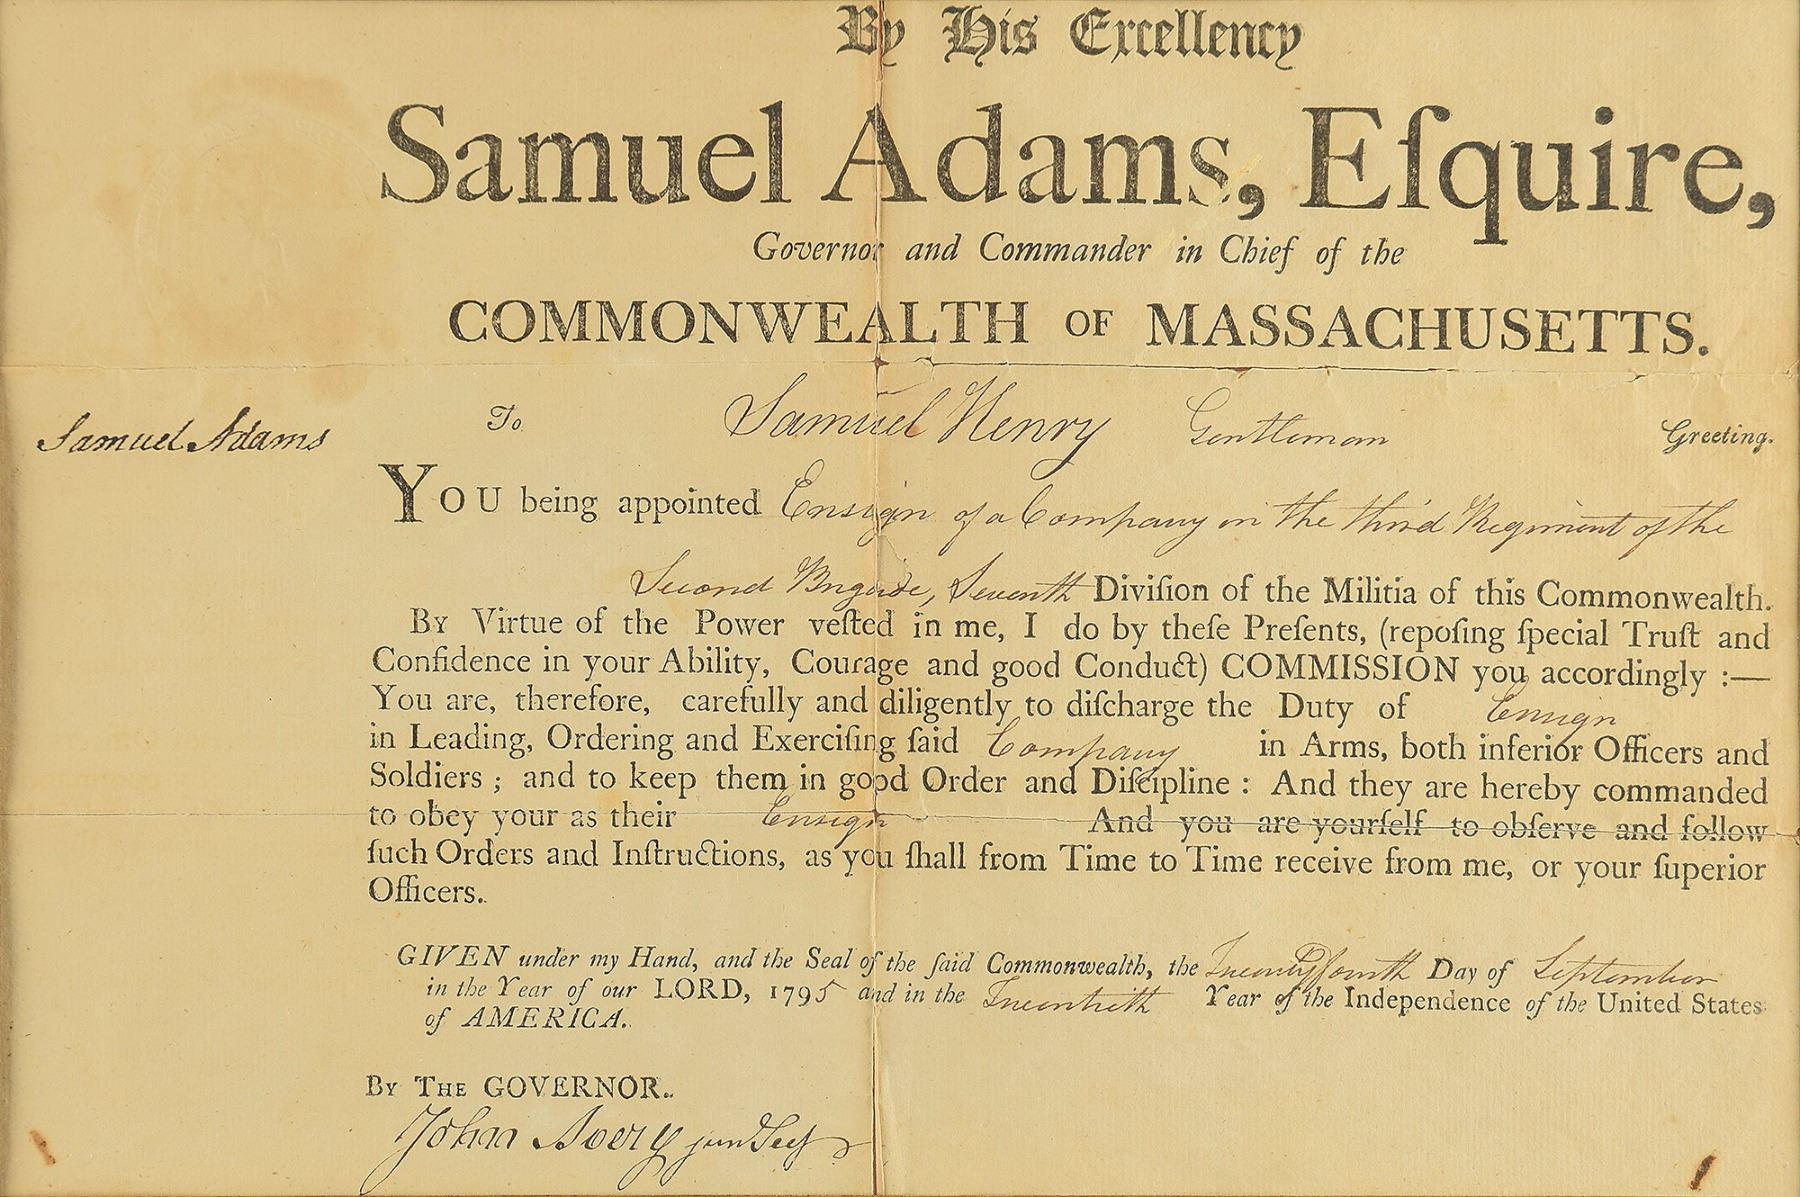 By His Excellency
Samuel Adams, Eſquire,
Governor and Commander in Chief of the
COMMONWEALTH OF MASSACHUSETTS.
Samuel Adams
To Samuel Henry Gentleman Greeting.
YOU being appointed Ensign of a Company in the third Regiment of the
Second Brigade, Seventh Diviſion of the Militia of this Commonwealth.
By Virtue of the Power veſted in me, I do by theſe Preſents, (repoſing ſpecial Truſt and
Confidence in your Ability, Courage and good Conduct) COMMISSION you accordingly :—
You are, therefore, carefully and diligently to diſcharge the Duty of Ensign
in Leading, Ordering and Exerciſing ſaid Company in Arms, both inferior Officers and
Soldiers ; and to keep them in good Order and Diſcipline : And they are hereby commanded
to obey your as their Ensign And you are yourſelf to obſerve and follow
ſuch Orders and Inſtructions, as you ſhall from Time to Time receive from me, or your ſuperior
Officers.
GIVEN under my Hand, and the Seal of the ſaid Commonwealth, the Twenty fourth Day of September
in the Year of our LORD, 1795 and in the Twentieth Year of the Independence of the United States
of AMERICA.
BY THE GOVERNOR.
John Avery jun Secy